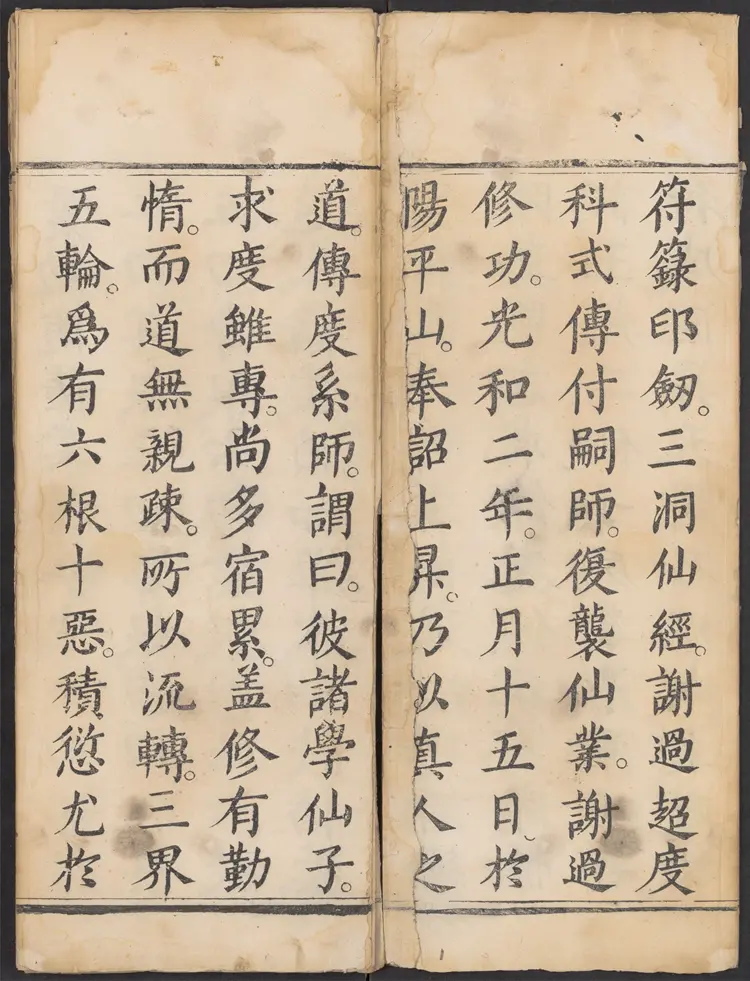 符籙印劔。三洞仙經。謝過超度
科式傳付嗣師。復襲仙業。謝過
修功。光和二年。正月十五日、於
陽平山。奉詔上昇。乃以真人之
道。傳度系師。謂曰。彼諸學仙子。
求度雖專。尚多宿累。盖修有勤
惰。而道無親疎。所以流轉。三界
五輪。爲有六根十惡。積愆尤於